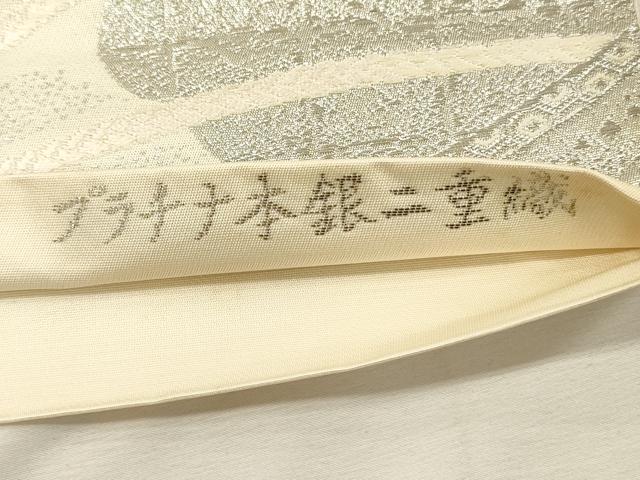 プラチナ本銀二重織